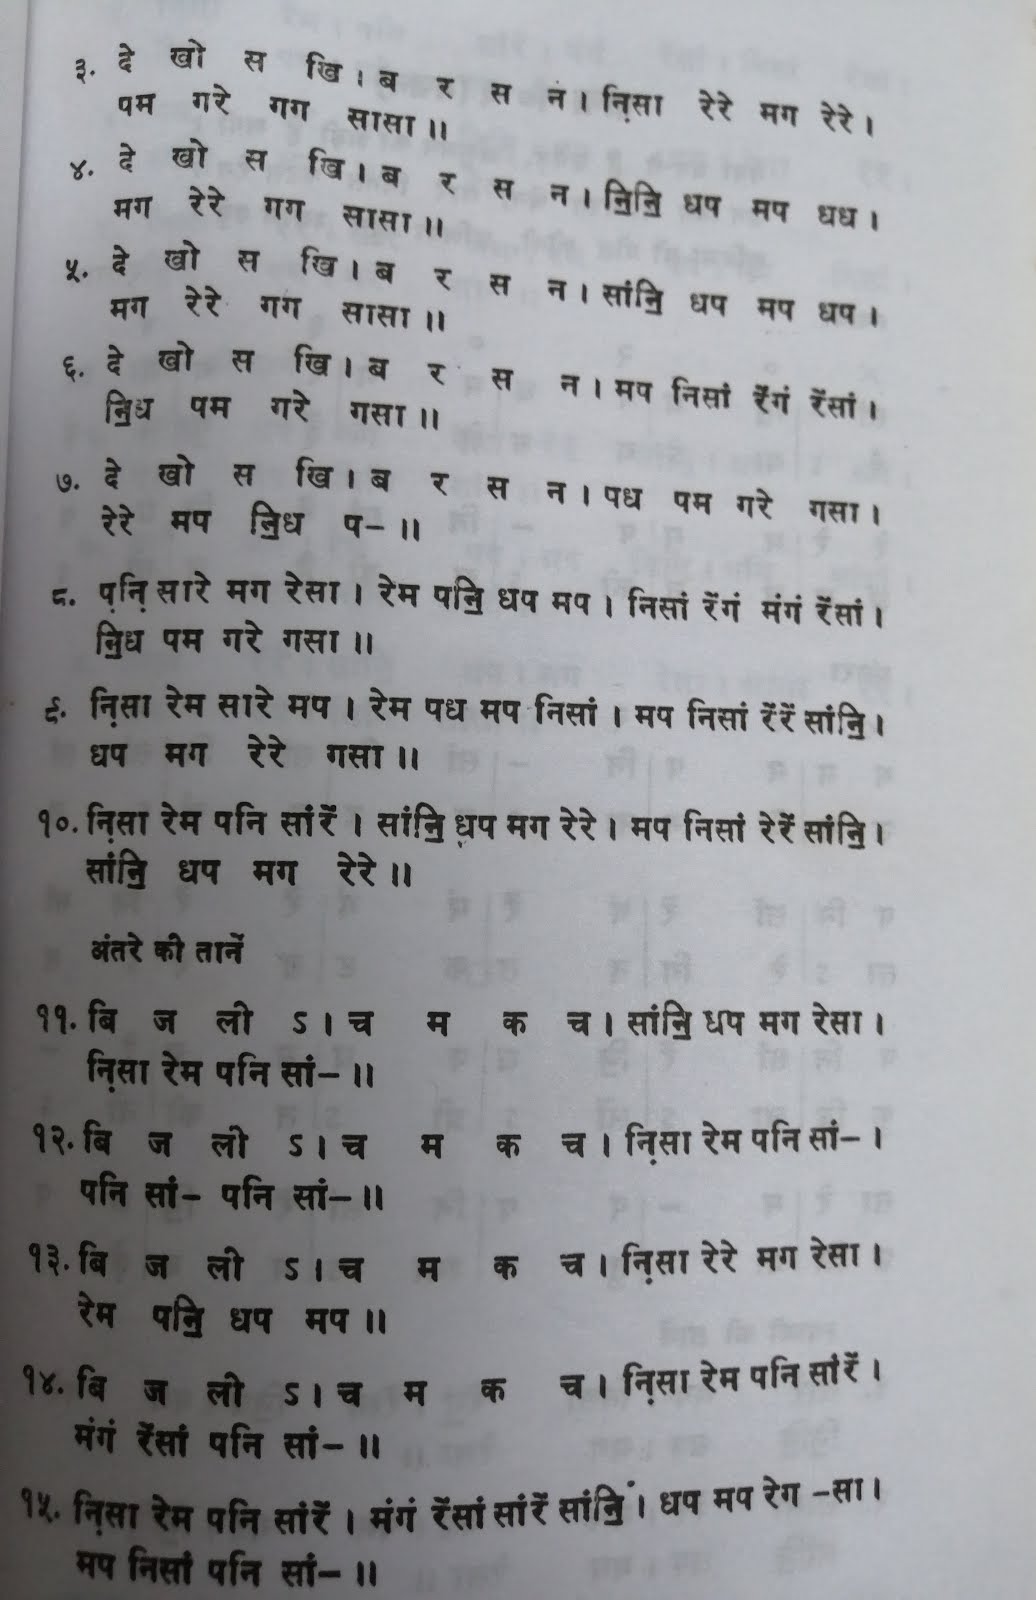 ३. दे खो स खि । ब र स न । नि़सा रेरे मग रेरे ।
पम गरे गग सासा ॥
४. दे खो स खि । ब र स न । नि॒नि॒ धप मप धध ।
मग रेरे गग सासा ॥
५. दे खो स खि । ब र स न । सांनि॒ धप मप धप ।
मग रेरे गग सासा ॥
६. दे खो स खि । ब र स न । मप निसां रेंगं रेंसां ।
नि॒ध पम गरे गसा ॥
७. दे खो स खि । ब र स न । पध पम गरे गसा ।
रेरे मप नि॒ध प- ॥
८. प़नि़ सारे मग रेसा । रेम पनि॒ धप मप । निसां रेंगं मंगं रेंसां ।
नि॒ध पम गरे गसा ॥
९. नि़सा रेम सारे मप । रेम पध मप निसां । मप निसां रेंरें सांनि॒ ।
धप मग रेरे गसा ॥
१०. नि़सा रेम पनि सांरें । सांनि॒ ध़प मग रेरे । मप निसां रेरें सांनि॒ ।
सांनि॒ धप मग रेरे ॥
अंतरे की तानें
११. बि ज ली ऽ । च म क च । सांनि॒ धप मग रेसा ।
नि़सा रेम पनि सां- ॥
१२. बि ज ली ऽ । च म क च । नि़सा रेम पनि सां- ।
पनि सां- पनि सां- ॥
१३. बि ज ली ऽ । च म क च । नि़सा रेरे मग रेसा ।
रेम पनि॒ धप मप ॥
१४. बि ज ली ऽ । च म क च । नि़सा रेम पनि सांरें ।
मंगं रेंसां पनि सां- ॥
१५. नि़सा रेम पनि सांरें । मंगं रेंसां सांरें सांनि॒ं । धप मप रेग -सा ।
मप निसां पनि सां- ॥